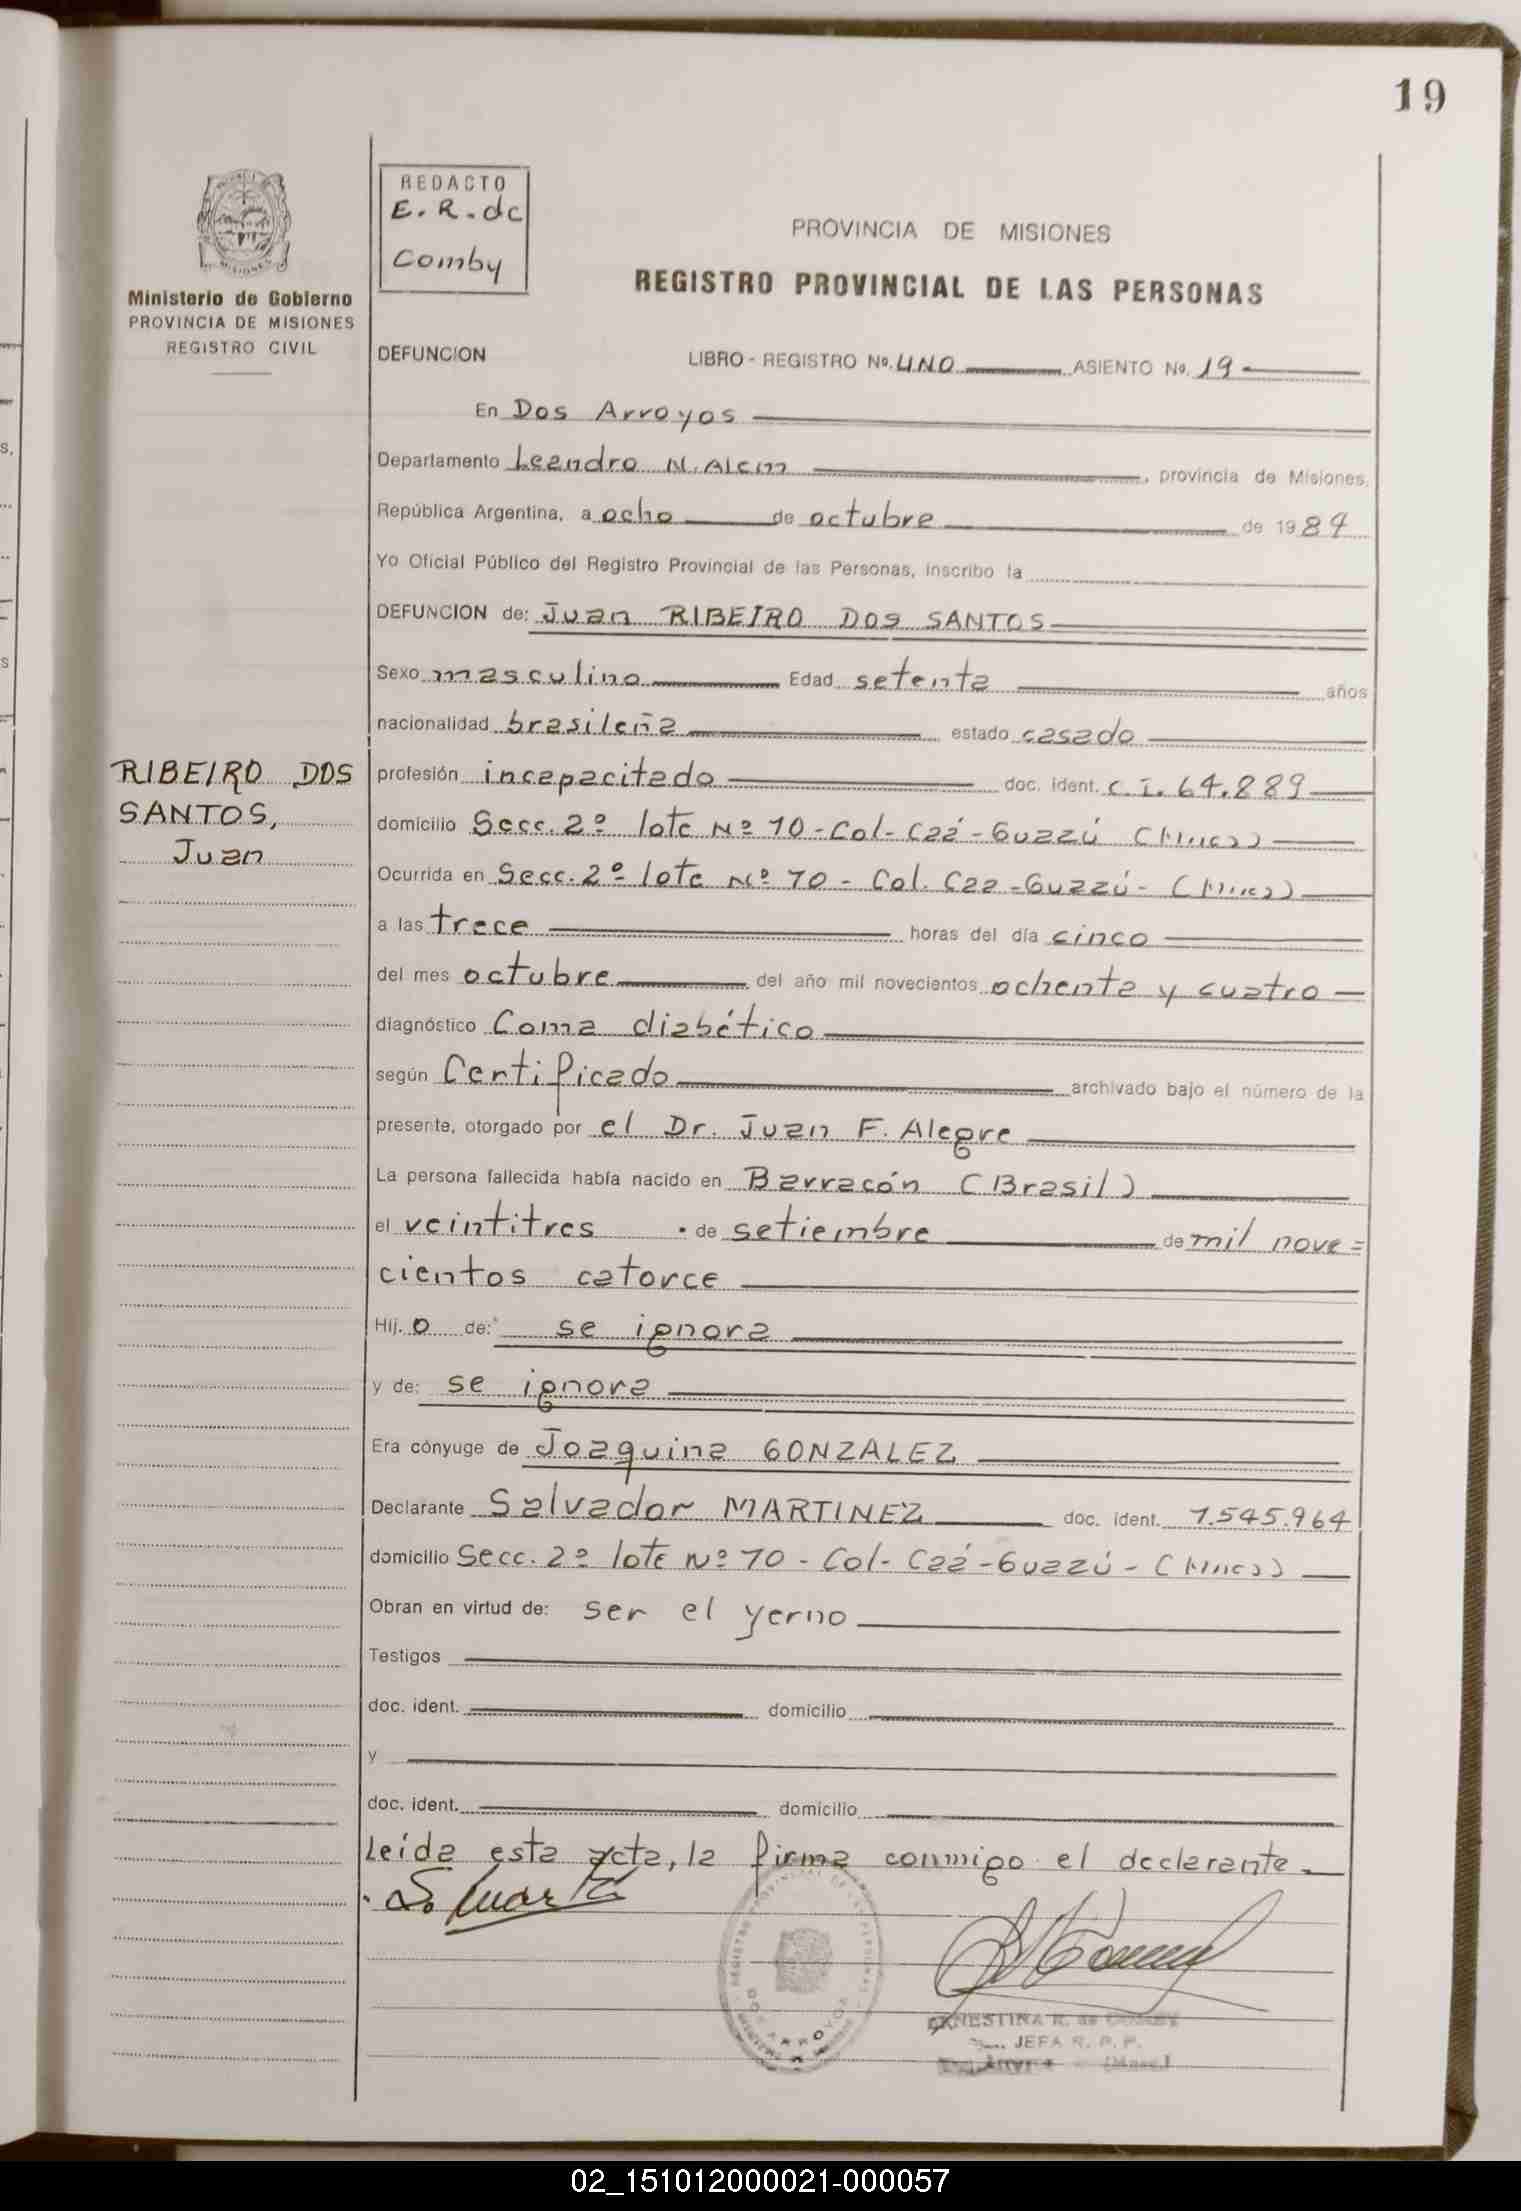 19
REDACTO
E. R. de
Comby
MISIONES
Ministerio de Gobierno
PROVINCIA DE MISIONES
REGISTRO CIVIL
PROVINCIA DE MISIONES
REGISTRO PROVINCIAL DE LAS PERSONAS
DEFUNCION LIBRO - REGISTRO No. UNO ASIENTO No. 19
En Dos Arroyos
Departamento Leandro N. Alem, provincia de Misiones,
República Argentina, a ocho de octubre de 1984
Yo Oficial Público del Registro Provincial de las Personas, inscribo la
DEFUNCION de: Juan RIBEIRO DOS SANTOS
Sexo masculino Edad setenta años
nacionalidad brasileña estado casado
RIBEIRO DOS
SANTOS,
Juan
profesión incapacitado doc. ident. C.I. 64.889
domicilio Secc. 2º lote Nº 10 - Col- Caá - Guazú
Ocurrida en Secc. 2º lote Nº 10 - Col. Caa - Guazú -
a las trece horas del día cinco
del mes octubre del año mil novecientos ochenta y cuatro
diagnóstico Coma diabético
según Certificado archivado bajo el número de la
presente, otorgado por el Dr. Juan F. Alegre
La persona fallecida había nacido en Barracón (Brasil)
el veintitres de setiembre de mil nove=
cientos catorce
Hij. o de: se ignora
y de: se ignora
Era cónyuge de Joaquina GONZALEZ
Declarante Salvador MARTINEZ doc. ident. 7.545.964
domicilio Secc. 2º lote Nº 10 - Col- Caá - Guazú -
Obran en virtud de: ser el yerno
Testigos
doc. ident. domicilio
y
doc. ident. domicilio
Leída esta acta, la firma conmigo el declarante.
DOS ARROYOS
ERNESTINA R. de COMBY
JEFA R. P. P.
02_151012000021-000057